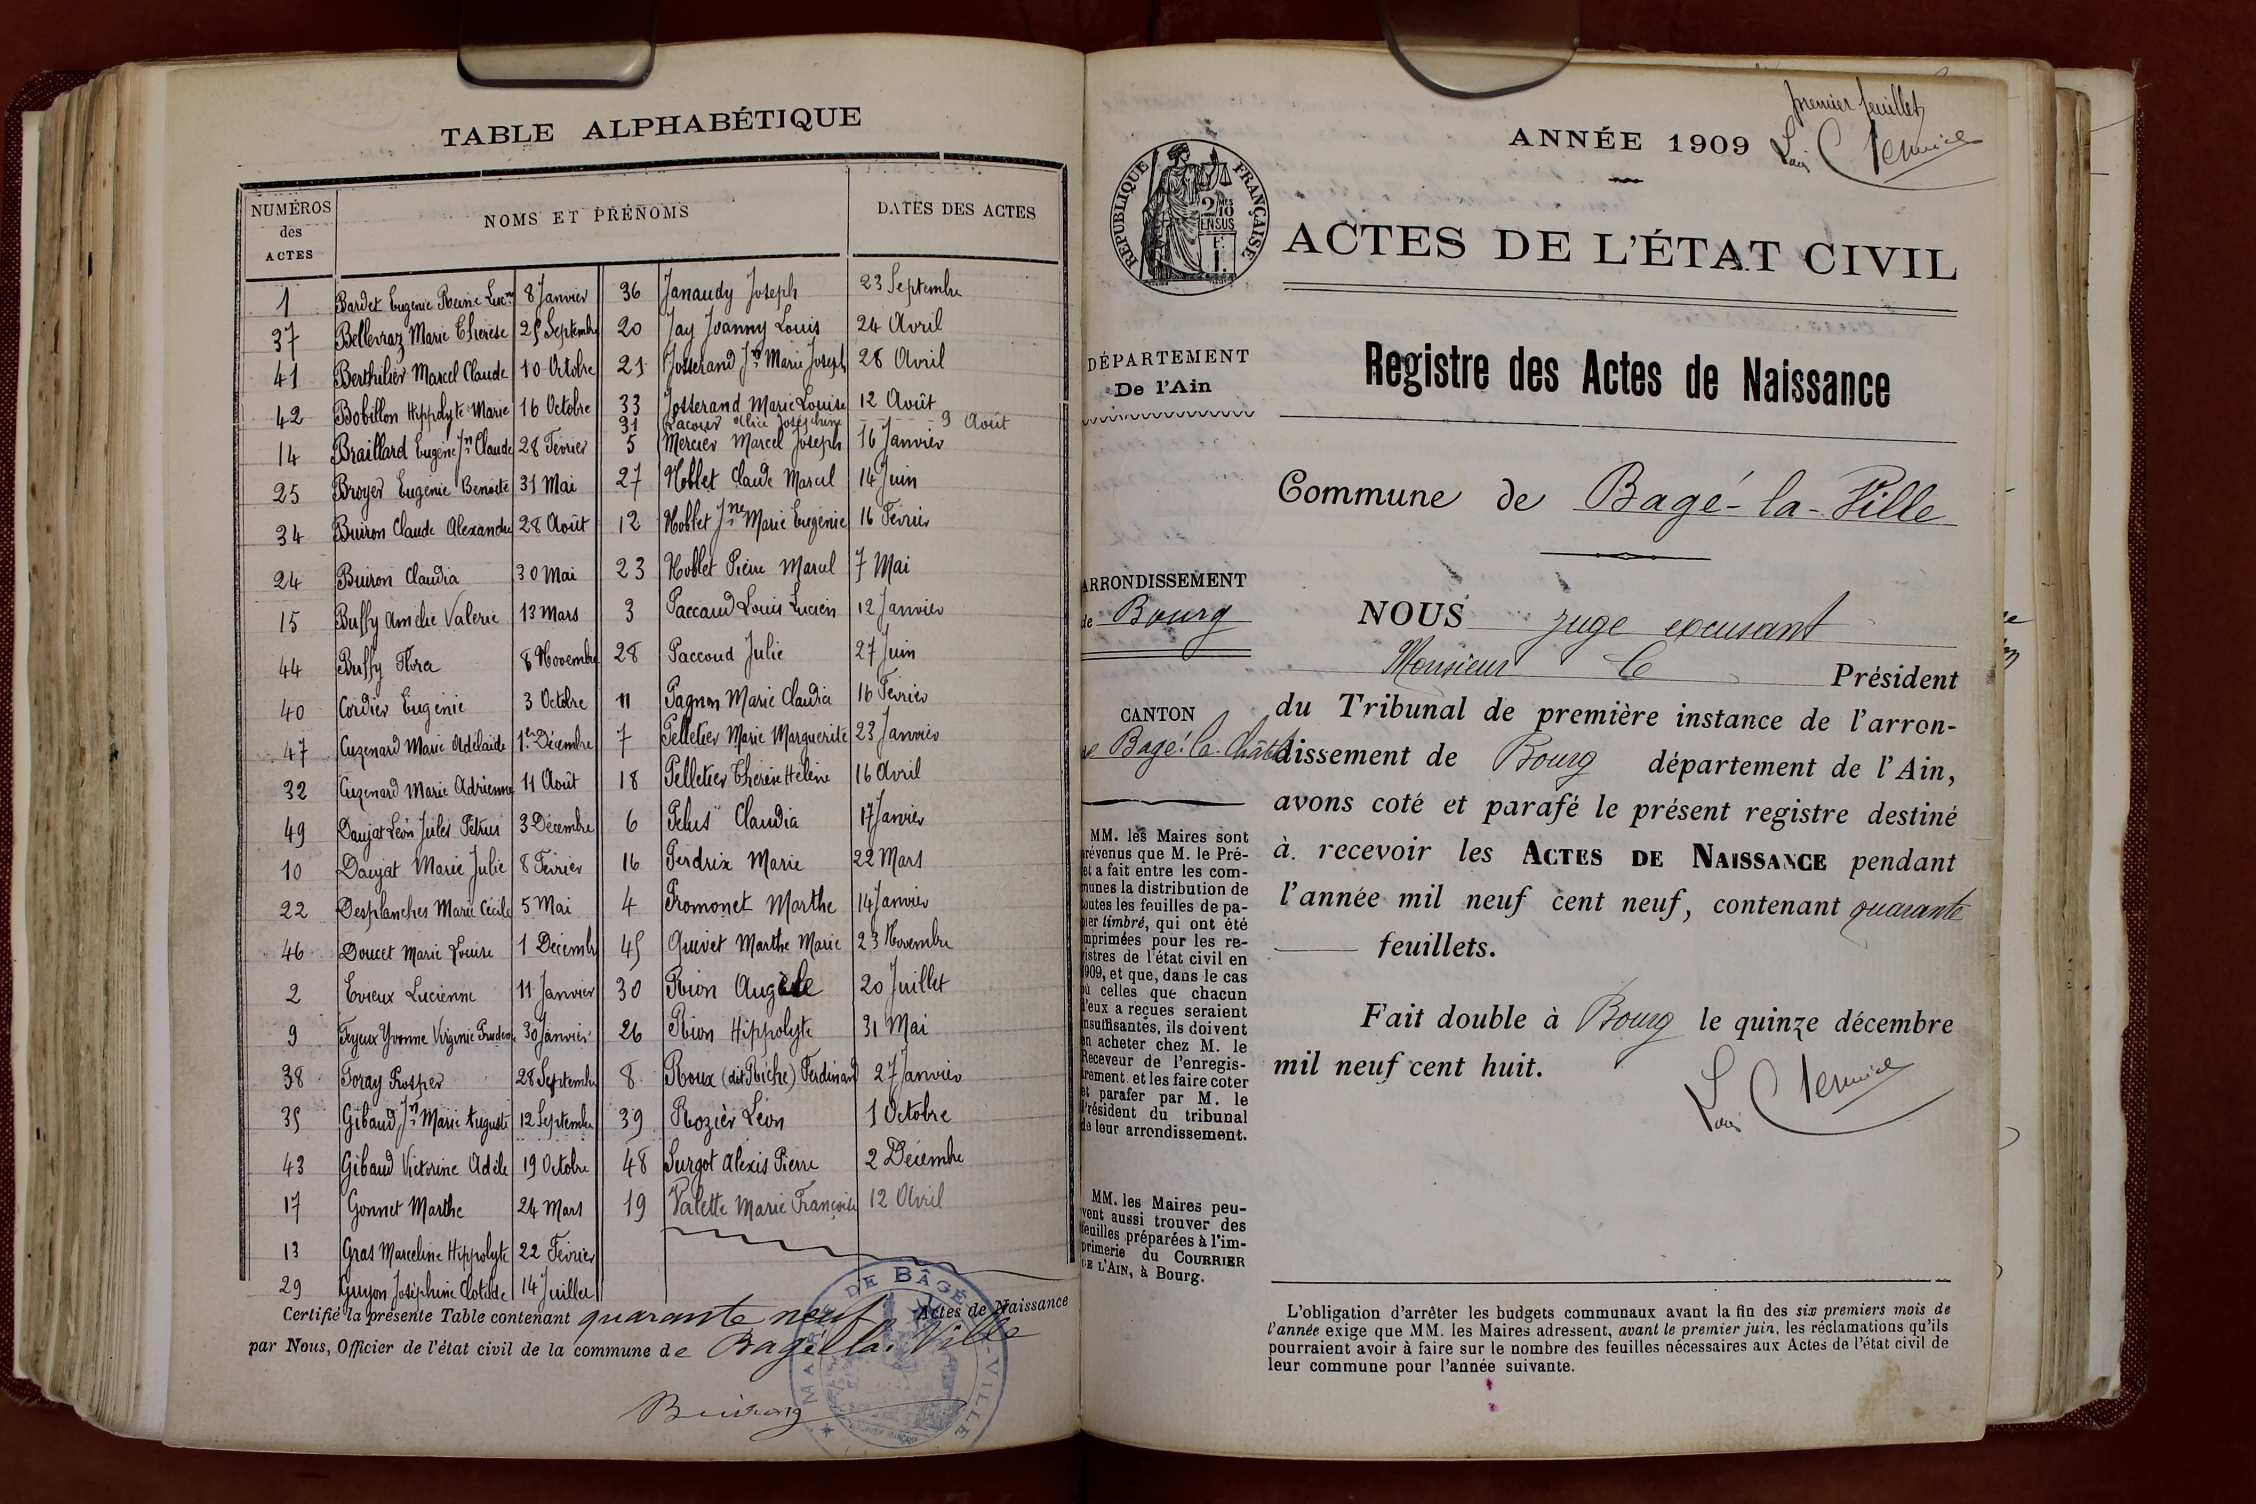 TABLE ALPHABÉTIQUE
NUMÉROS des ACTES
NOMS ET PRÉNOMS
DATES DES ACTES
1 Bardet Eugénie Reine Luc^ne 8 Janvier
37 Bellevraz Marie Thérèse 25 Septembre
41 Berthilier Marcel Claude 10 Octobre
42 Bobillon Hippolyte Marie 16 Octobre
14 Braillard Eugène Jn Claude 28 Février
25 Broyer Eugénie Benoite 31 Mai
34 Buiron Claude Alexandre 28 Août
24 Buiron Claudia 30 Mai
15 Buffy Amélie Valérie 13 Mars
44 Buffy Flora 8 Novembre
40 Cordier Eugénie 3 Octobre
47 Cuzenard Marie Adélaïde 1er Décembre
32 Cuzenard Marie Adrienne 11 Août
49 Daujat Léon Jules Pétrus 3 Décembre
10 Daujat Marie Julie 8 Février
22 Desplanches Marie Cécile 5 Mai
46 Doucet Marie Louise 1 Décembre
2 Evieux Lucienne 11 Janvier
9 Feyeux Yvonne Virginie 30 Janvier
38 Foray Prosper 28 Septembre
35 Gibaud Jn Marie Auguste 12 Septembre
43 Gibaud Victorine Adèle 19 Octobre
17 Gonnet Marthe 24 Mars
13 Gras Marceline Hippolyte 22 Février
29 Guyon Joséphine Clotilde 14 Juillet
36 Janaudy Joseph 23 Septembre
20 Jay Joanny Louis 24 Avril
21 Josserand Jn Marie Joseph 28 Avril
33 Josserand Marie Louise 12 Août
31 Lacour Alice Joséphine 9 Août
5 Mercier Marcel Joseph 16 Janvier
27 Noblet Claude Marcel 14 Juin
12 Noblet Jne Marie Eugénie 16 Février
23 Noblet Pierre Marcel 7 Mai
3 Paccaud Louis Lucien 12 Janvier
28 Paccoud Julie 27 Juin
11 Pagnon Marie Claudia 16 Février
7 Pelletier Marie Marguerite 23 Janvier
18 Pelletier Thérèse Hélène 16 Avril
6 Pelus Claudia 17 Janvier
16 Perdrix Marie 22 Mars
4 Promonet Marthe 14 Janvier
45 Quivet Marthe Marie 23 Novembre
30 Rion Angèle 20 Juillet
26 Rion Hippolyte 31 Mai
8 Roux (dit Riche) Ferdinand 27 Janvier
39 Rozier Léon 1 Octobre
48 Surgot Alexis Pierre 2 Décembre
19 Valette Marie Françoise 12 Avril
Certifié la présente Table contenant quarante neuf Actes de Naissance
par Nous, Officier de l'état civil de la commune de Bagé la Ville
MAIRIE DE BÂGÉ-LA-VILLE
premier feuillet
ANNÉE 1909
RÉPUBLIQUE FRANÇAISE
2 MES 10 EN SUS
ACTES DE L'ÉTAT CIVIL
DÉPARTEMENT
De l'Ain
Registre des Actes de Naissance
Commune de Bagé-la-Ville
ARRONDISSEMENT
de Bourg
CANTON
de Bagé-le-Châtel
MM. les Maires sont
prévenus que M. le Pré-
fet a fait entre les com-
munes la distribution de
toutes les feuilles de pa-
pier timbré, qui ont été
imprimées pour les re-
gistres de l'état civil en
1909, et que, dans le cas
où celles que chacun
d'eux a reçues seraient
insuffisantes, ils doivent
en acheter chez M. le
Receveur de l'enregis-
trement et les faire coter
et parafer par M. le
Président du tribunal
de leur arrondissement.
MM. les Maires peu-
vent aussi trouver des
feuilles préparées à l'im-
primerie du COURRIER
DE L'AIN, à Bourg.
NOUS juge excusant
Monsieur le Président
du Tribunal de première instance de l'arron-
dissement de Bourg département de l'Ain,
avons coté et parafé le présent registre destiné
à recevoir les ACTES DE NAISSANCE pendant
l'année mil neuf cent neuf, contenant quarante
feuillets.
Fait double à Bourg le quinze décembre
mil neuf cent huit.
L'obligation d'arrêter les budgets communaux avant la fin des six premiers mois de
l'année exige que MM. les Maires adressent, avant le premier juin, les réclamations qu'ils
pourraient avoir à faire sur le nombre des feuilles nécessaires aux Actes de l'état civil de
leur commune pour l'année suivante.